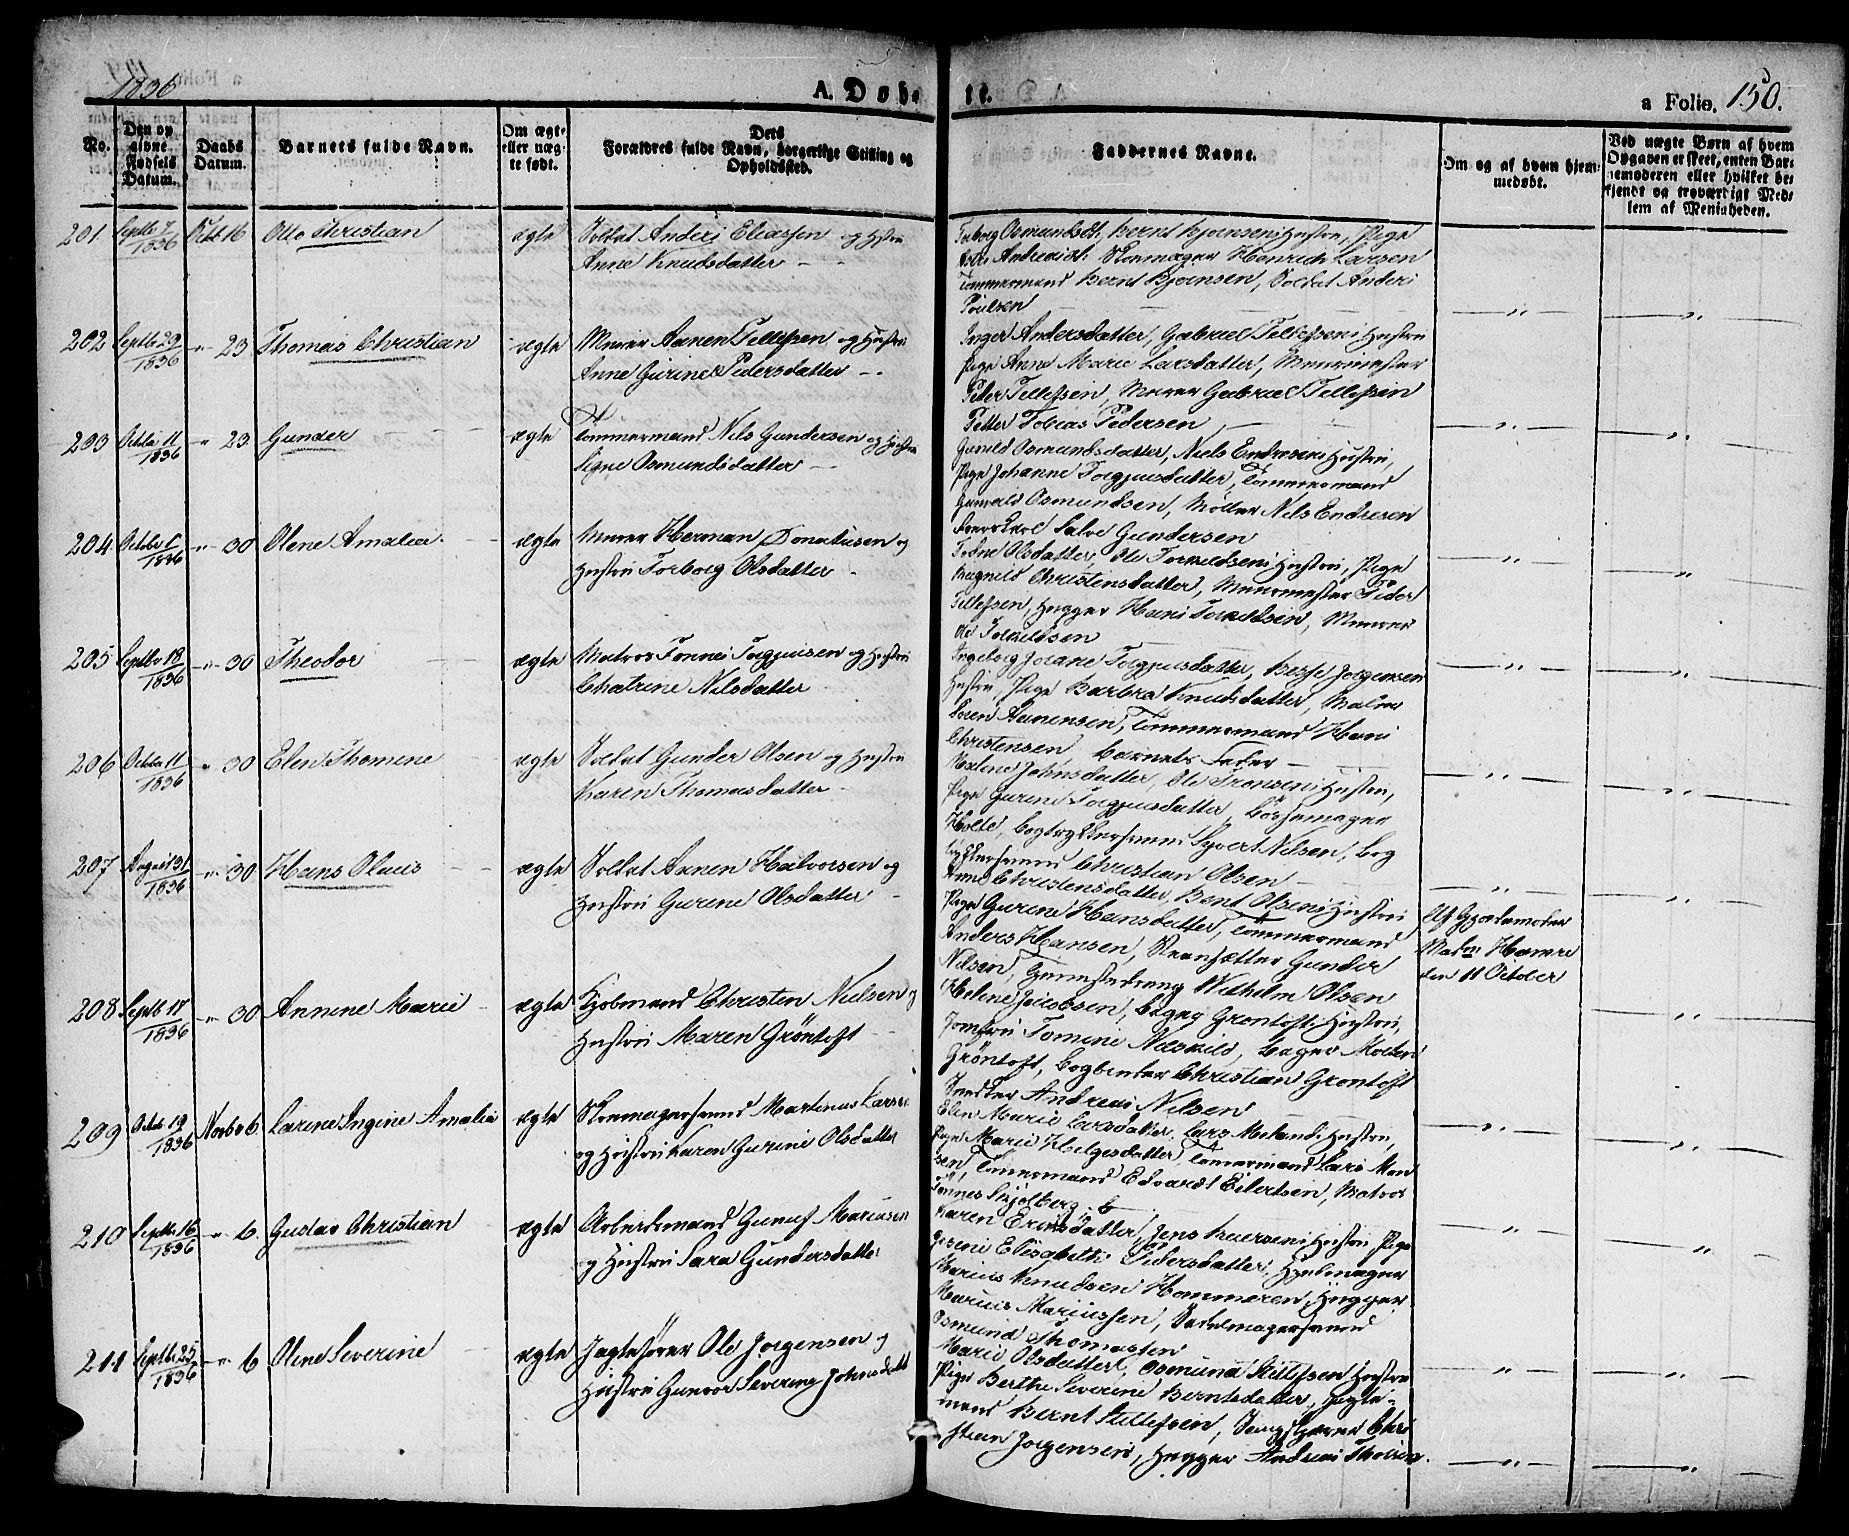 1836
A. Døbte.
a Folio. 150.
No.
Den op
givne
Fødsels
Datum.
Daabs
Datum.
Barnets fulde Navn.
Om ægte
eller uæg-
te født.
Dets
Forældres fulde Navn, borgerlige Stilling og
Opholdssted.
Faddernes Navne.
Om og af hvem hjem-
medøbt.
Ved uægte Børn af hvem
Opgaven er skeet, enten Bar-
nemoderen eller hvilket be-
kjendt og troværdigt Med-
lem af Menigheden.
201 Septb 7 1836 16 Otto Christian ægte Soldat Anders Eliassen og Hustru
Anne Knudsdatter
Torborg Osmundsdt:, Bernt Bjørnsens Hustru, Pige
Andreasdt: Skomager Henrich Larsen
Tømmermand Bernt Bjørnsen, Soldat Anders
Poulsen
202 Septb 29 1836 " 23 Thomas Christian ægte Murer Aanen Tellefsen og Hustru
Anne Gurine Pedersdatter
Inger Andersdatter, Gabriel Tellefsens Hustru
Pige Anne Marie Larsdatter, Muurmester
Peder Tellefsen, Murer Gabriel Tellefsen
Petter Tobias Pedersen
203 Octbr 11 1836 " 23 Gunder ægte Tømmermand Nils Gundersen og Hustru
Signe Osmundsdatter
Gunild Osmundsdatter, Niels Endresens Hustru,
Pige Johanne Torgjusdatter, Tømmermand
Gunvald Osmundsen, Møller Nils Endresen
Salve Gundersen
204 Octobr 1836 " 30 Olene Amalia ægte Murer Herman Donatusen og
Hustru Torborg Olsdatter
Todne Olsdatter, Ole Torkildsens Hustru, Pige
Ragnild Christensdatter, Muurmester Peder
Tellefsen, Hugger Hans Torkildsen, Murer
Ole Torkildsen
205 Septbr 18 1836 " 30 Theodor ægte Matros Tønnes Torgjusen og Hustru
Chatrine Nilsdatter
Ingeborg Joran Torgjusdatter, Jørgensen
Hustru, Pige Barbra Knudsdatter, Maler
Søren Aanensen, Tømmermand Hans
Christensen, Barnets Fader
206 Octbr 11 1836 " 30 Elen Thomine ægte Soldat Gunder Olsen og Hustru
Karen Thomasdatter
Malene Johnsdatter, Ole Tronsens Hustru,
Pige Gurine Torgjusdatter, Bøssemager
Holte, Bogtrykkersvend Syvert Nilsen, Bog
trykkersvend Christian Olsen
207 August 31 1836 " 30 Hans Olaus ægte Soldat Aanen Halvorsen og
Hustru Gurene Olsdatter
Anne Christensdatter, Bent Olsens Hustru
Pige Gurine Hansdatter, Tømmermand
Anders Hansen, Gunder
Nilsen, Wilhelm Olsen
Af Gjordemoder
Madm Hamre
den 11 October
208 Septb 17 1836 " 30 Annine Marie ægte Kjøbmand Christen Nielsen og
Hustru Maren Grøntoft
Helene Jacobsen, Bager Grontofts Hustru,
Jomfru Tomine Nilskild, Bager
Grøntoft, Bogbinder Christian Grontoft
Snedker Andreas Nilsen
209 Octob 19 1836 Novbr 6 Larene Ingine Amalia ægte Skomagersvend Martinus Larsen
og Hustru Karen Gurine Olsdatter
Elen Marie Larsdatter, Lars Hustru,
Pige Marie Helgesdatter, Tømmermand Lars
Tømmermand Edvardt Eilertsen, Matros
Tønnes Skjolberg
210 Septb 16 1836 " 6 Gustav Christian ægte Arbeidsmand Gunuf Mariusen
og Hustru Sara Gundersdatter
Karen Eriksdatter, Jens Hustru Pige
Elisabeth Pedersdatter, Hjulmager
Marius Knudsen Hammeren, Hugger
Marius Mariussen, Sadelmagersvend
Osmund Thomasen
211 Septb 25 1836 " 6 Olene Severine ægte Jagtefører Ole Jørgensen og
Hustru Gunvor Severine Johnsdatt
Marie Olsdatter, Osmund Kittelsen Hustru
Pige Berthe Severine Berntsdatter, Jagte-
mand Bernt Kittelsen, Chri
stian Jørgensen, Hugger Andreas